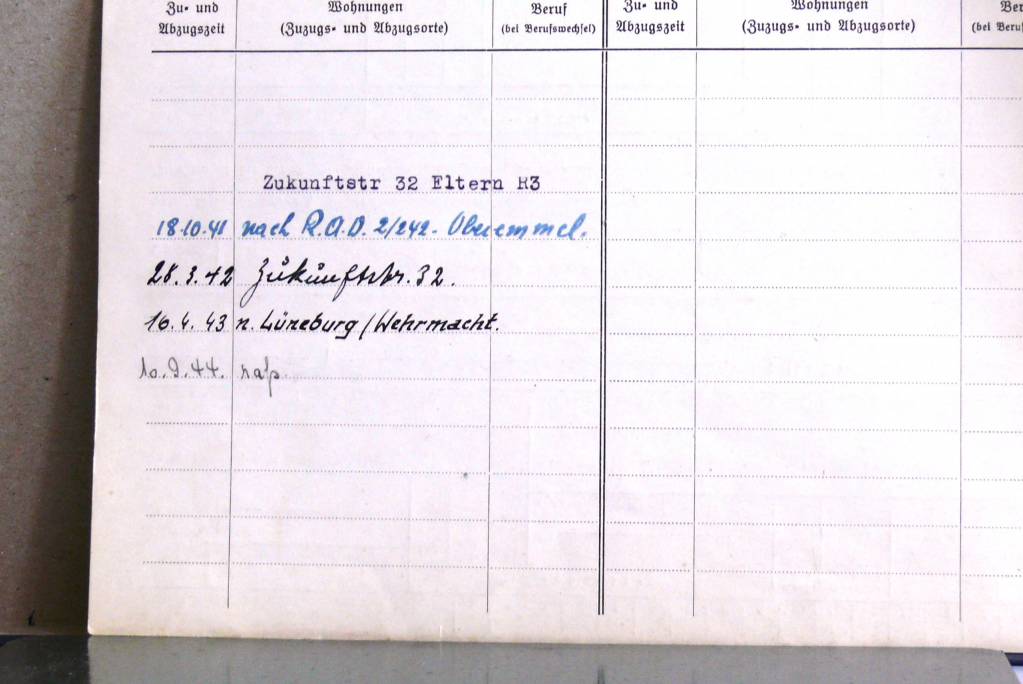 Zu- und Abzugszeit
Wohnungen (Zuzugs- und Abzugsorte)
Beruf (bei Berufswechsel)
Zu- und Abzugszeit
Wohnungen (Zuzugs- und Abzugsorte)
(bei
Zukunftstr 32 Eltern R3
18.10.41 nach R.A.D. 2/242. Oberemmel.
28.3.42 Zukunftstr. 32.
16.4.43 n. Lüneburg / Wehrmacht.
10.9.44.